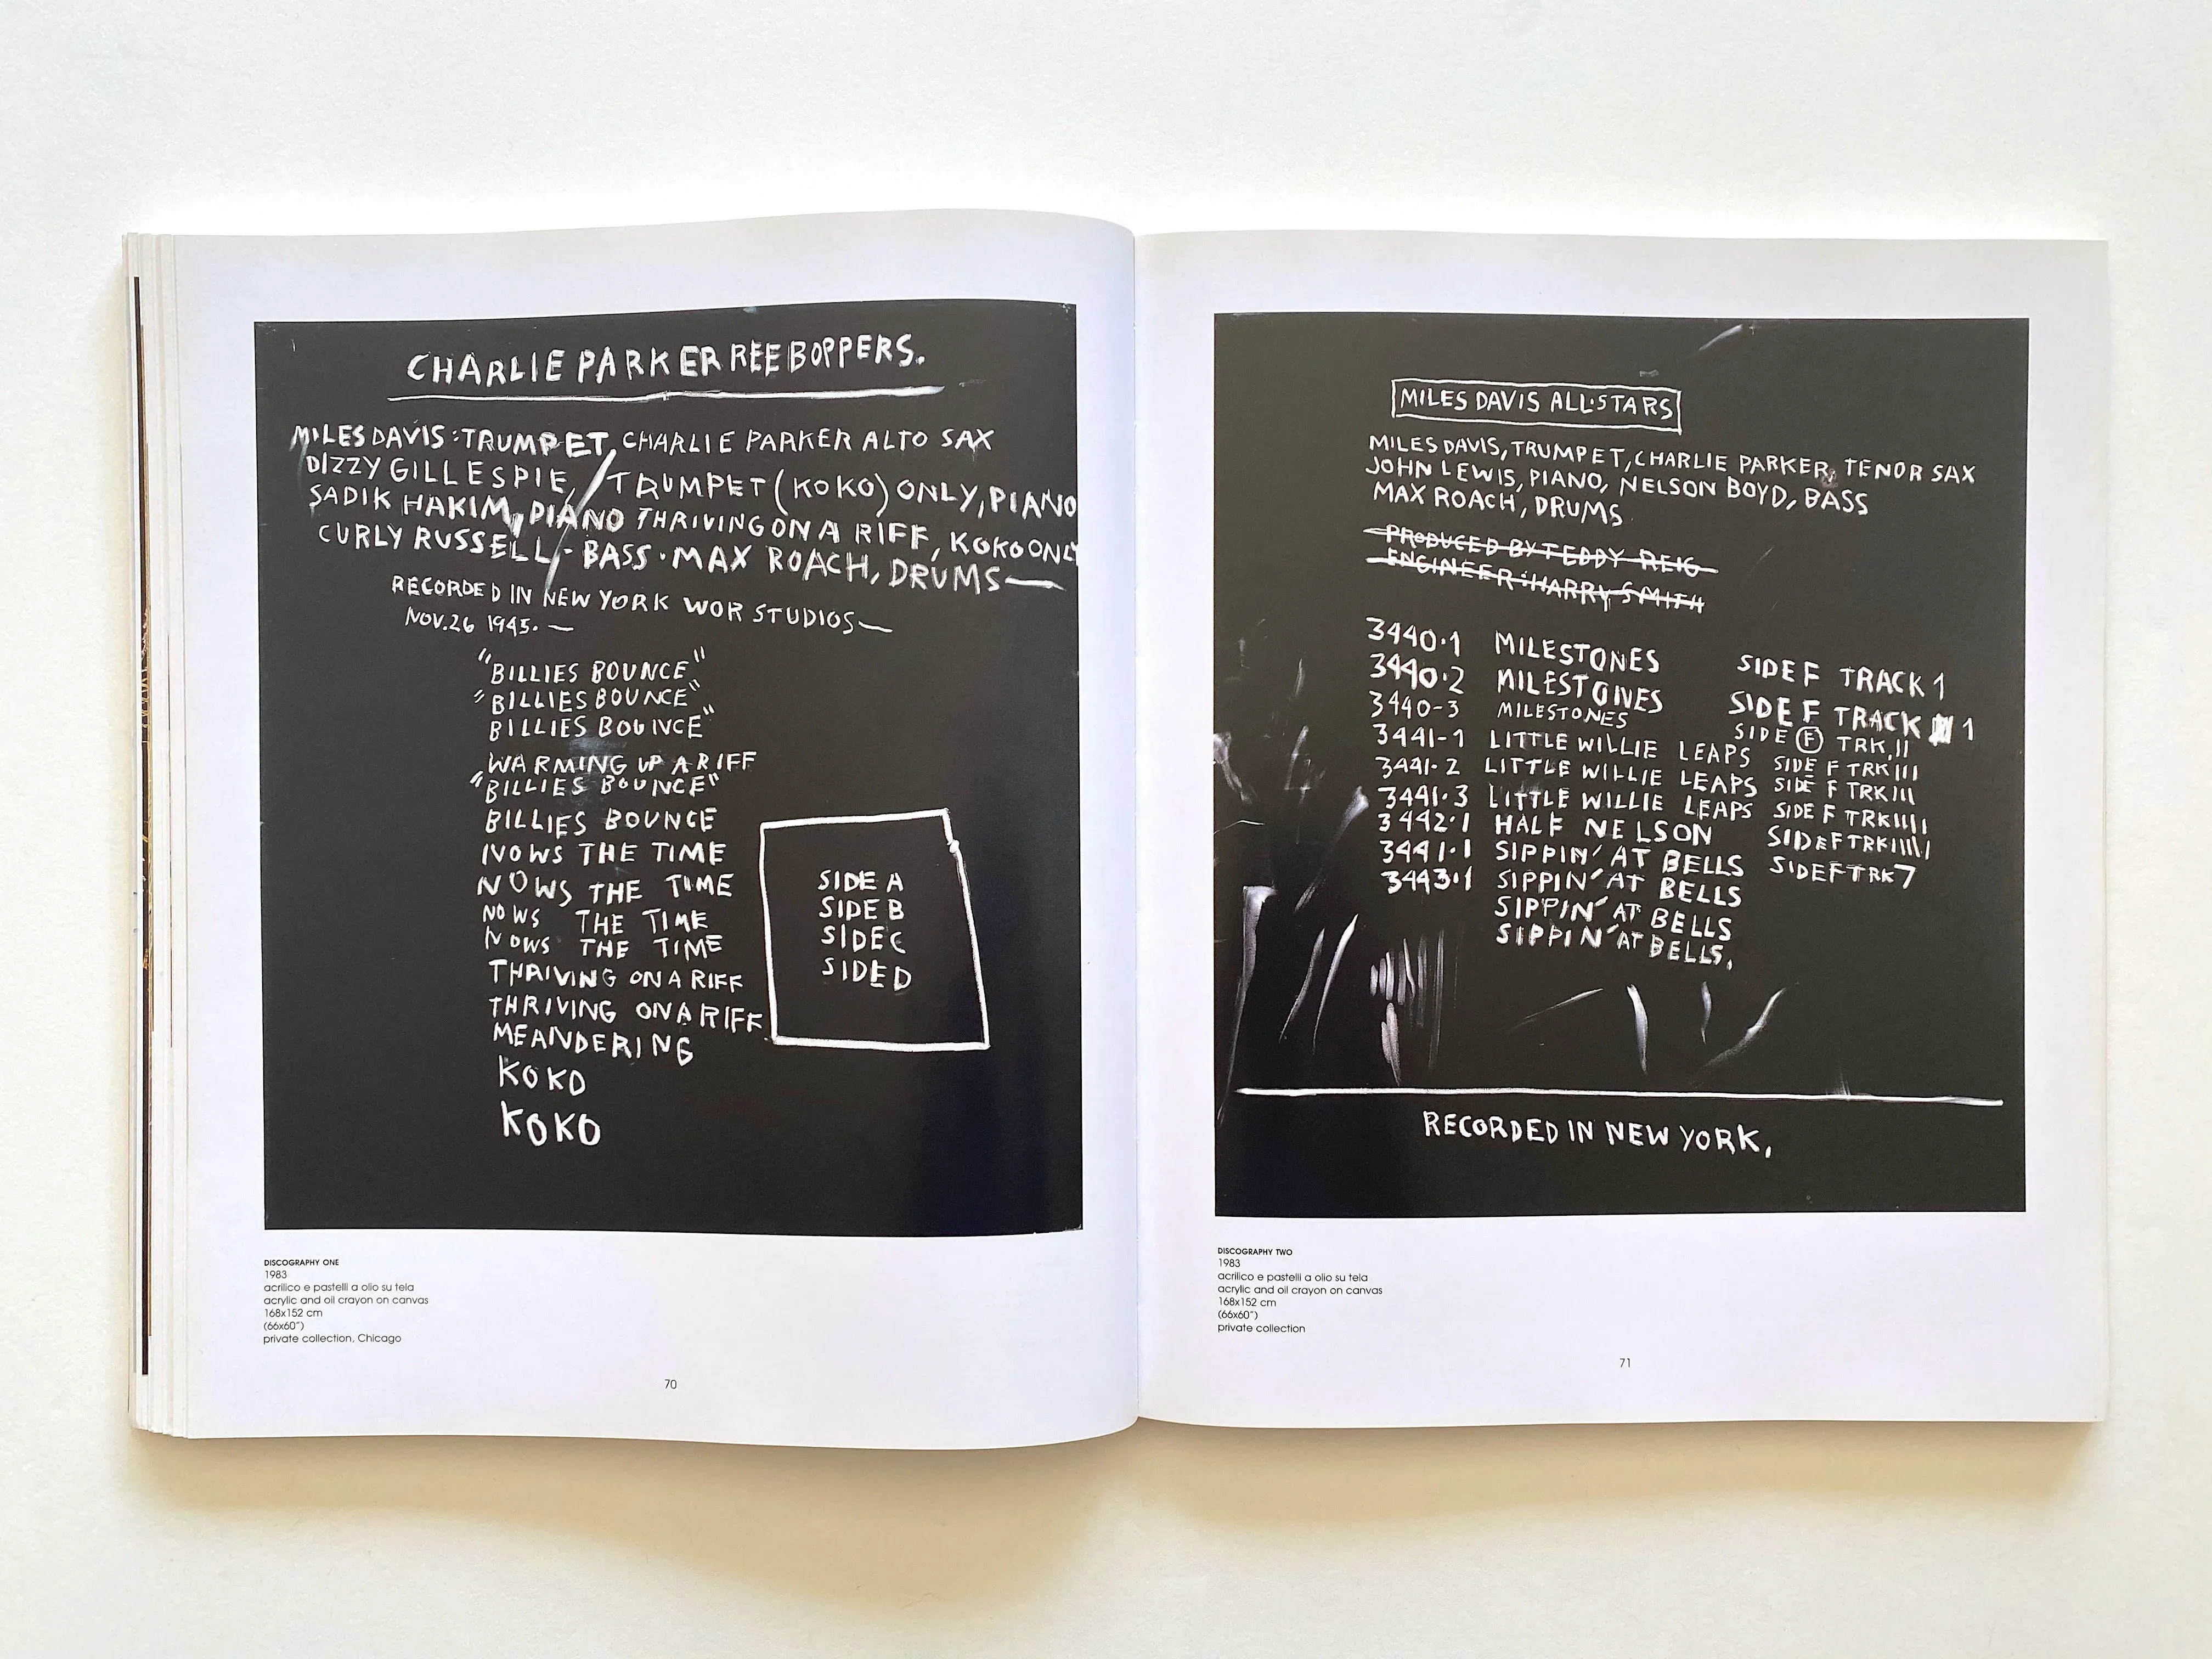 CHARLIE PARKER REEBOPPERS.
MILES DAVIS : TRUMPET, CHARLIE PARKER ALTO SAX
DIZZY GILLESPIE, / TRUMPET (KOKO) ONLY, PIANO
SADIK HAKIM, PIANO THRIVING ON A RIFF, KOKO ONLY
CURLY RUSSELL, · BASS · MAX ROACH, DRUMS—
RECORDED IN NEW YORK WOR STUDIOS—
NOV. 26 1945. —
"BILLIES BOUNCE"
"BILLIES BOUNCE"
BILLIES BOUNCE"
WARMING UP A RIFF
"BILLIES BOUNCE"
BILLIES BOUNCE
NOWS THE TIME
NOWS THE TIME
NOWS THE TIME
NOWS THE TIME
THRIVING ON A RIFF
THRIVING ON A RIFF
MEANDERING
KOKO
KOKO
SIDE A
SIDE B
SIDE C
SIDE D
DISCOGRAPHY ONE
1983
acrilico e pastelli a olio su tela
acrylic and oil crayon on canvas
168x152 cm
(66x60")
private collection, Chicago
70
MILES DAVIS ALL·STARS
MILES DAVIS, TRUMPET, CHARLIE PARKER, TENOR SAX
JOHN LEWIS, PIANO, NELSON BOYD, BASS
MAX ROACH, DRUMS
PRODUCED BY TEDDY REIG
ENGINEER: HARRY SMITH
3440·1 MILESTONES SIDE F TRACK 1
3440·2 MILESTONES SIDE F TRACK 1
3440-3 MILESTONES SIDE F TRK, II
3441-1 LITTLE WILLIE LEAPS SIDE F TRK III
3441·2 LITTLE WILLIE LEAPS SIDE F TRK III
3441·3 LITTLE WILLIE LEAPS SIDE F TRK IIII
3442·1 HALF NELSON SIDE F TRK IIIII
3441·1 SIPPIN' AT BELLS SIDE F TRK 7
3443·1 SIPPIN' AT BELLS
SIPPIN' AT BELLS
SIPPIN' AT BELLS.
RECORDED IN NEW YORK.
DISCOGRAPHY TWO
1983
acrilico e pastelli a olio su tela
acrylic and oil crayon on canvas
168x152 cm
(66x60")
private collection
71